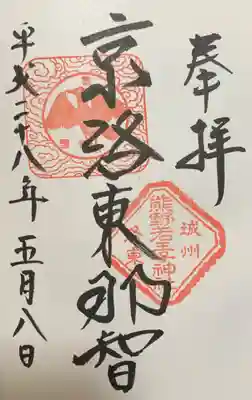 奉拝
京洛東那智
熊野若王子神社
城州
平成二十八年五月八日